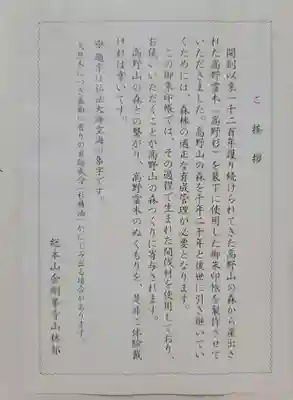 ご挨拶
開創以来一千二百年護り続けられてきた高野山の森から産出さ
れた高野霊木「高野杉」を装丁に使用した御朱印帳を製作させて
いただきました。高野山の森を千年二千年と後世に引き継いでい
くためには、森林の適正な育成管理が必要となります。
この御朱印帳では、その過程で生まれた間伐材を使用しており、
お使いいただくことが高野山の森つくりに寄与されます。
高野山の森との繋がり、高野霊木のぬくもりを、是非ご体験戴
ければ幸いです。
※題字は弘法大師空海の集字です。
天然木につき表面に香りの有効成分(杉精油)がにじみ出る場合があります。
総本山金剛峯寺山林部